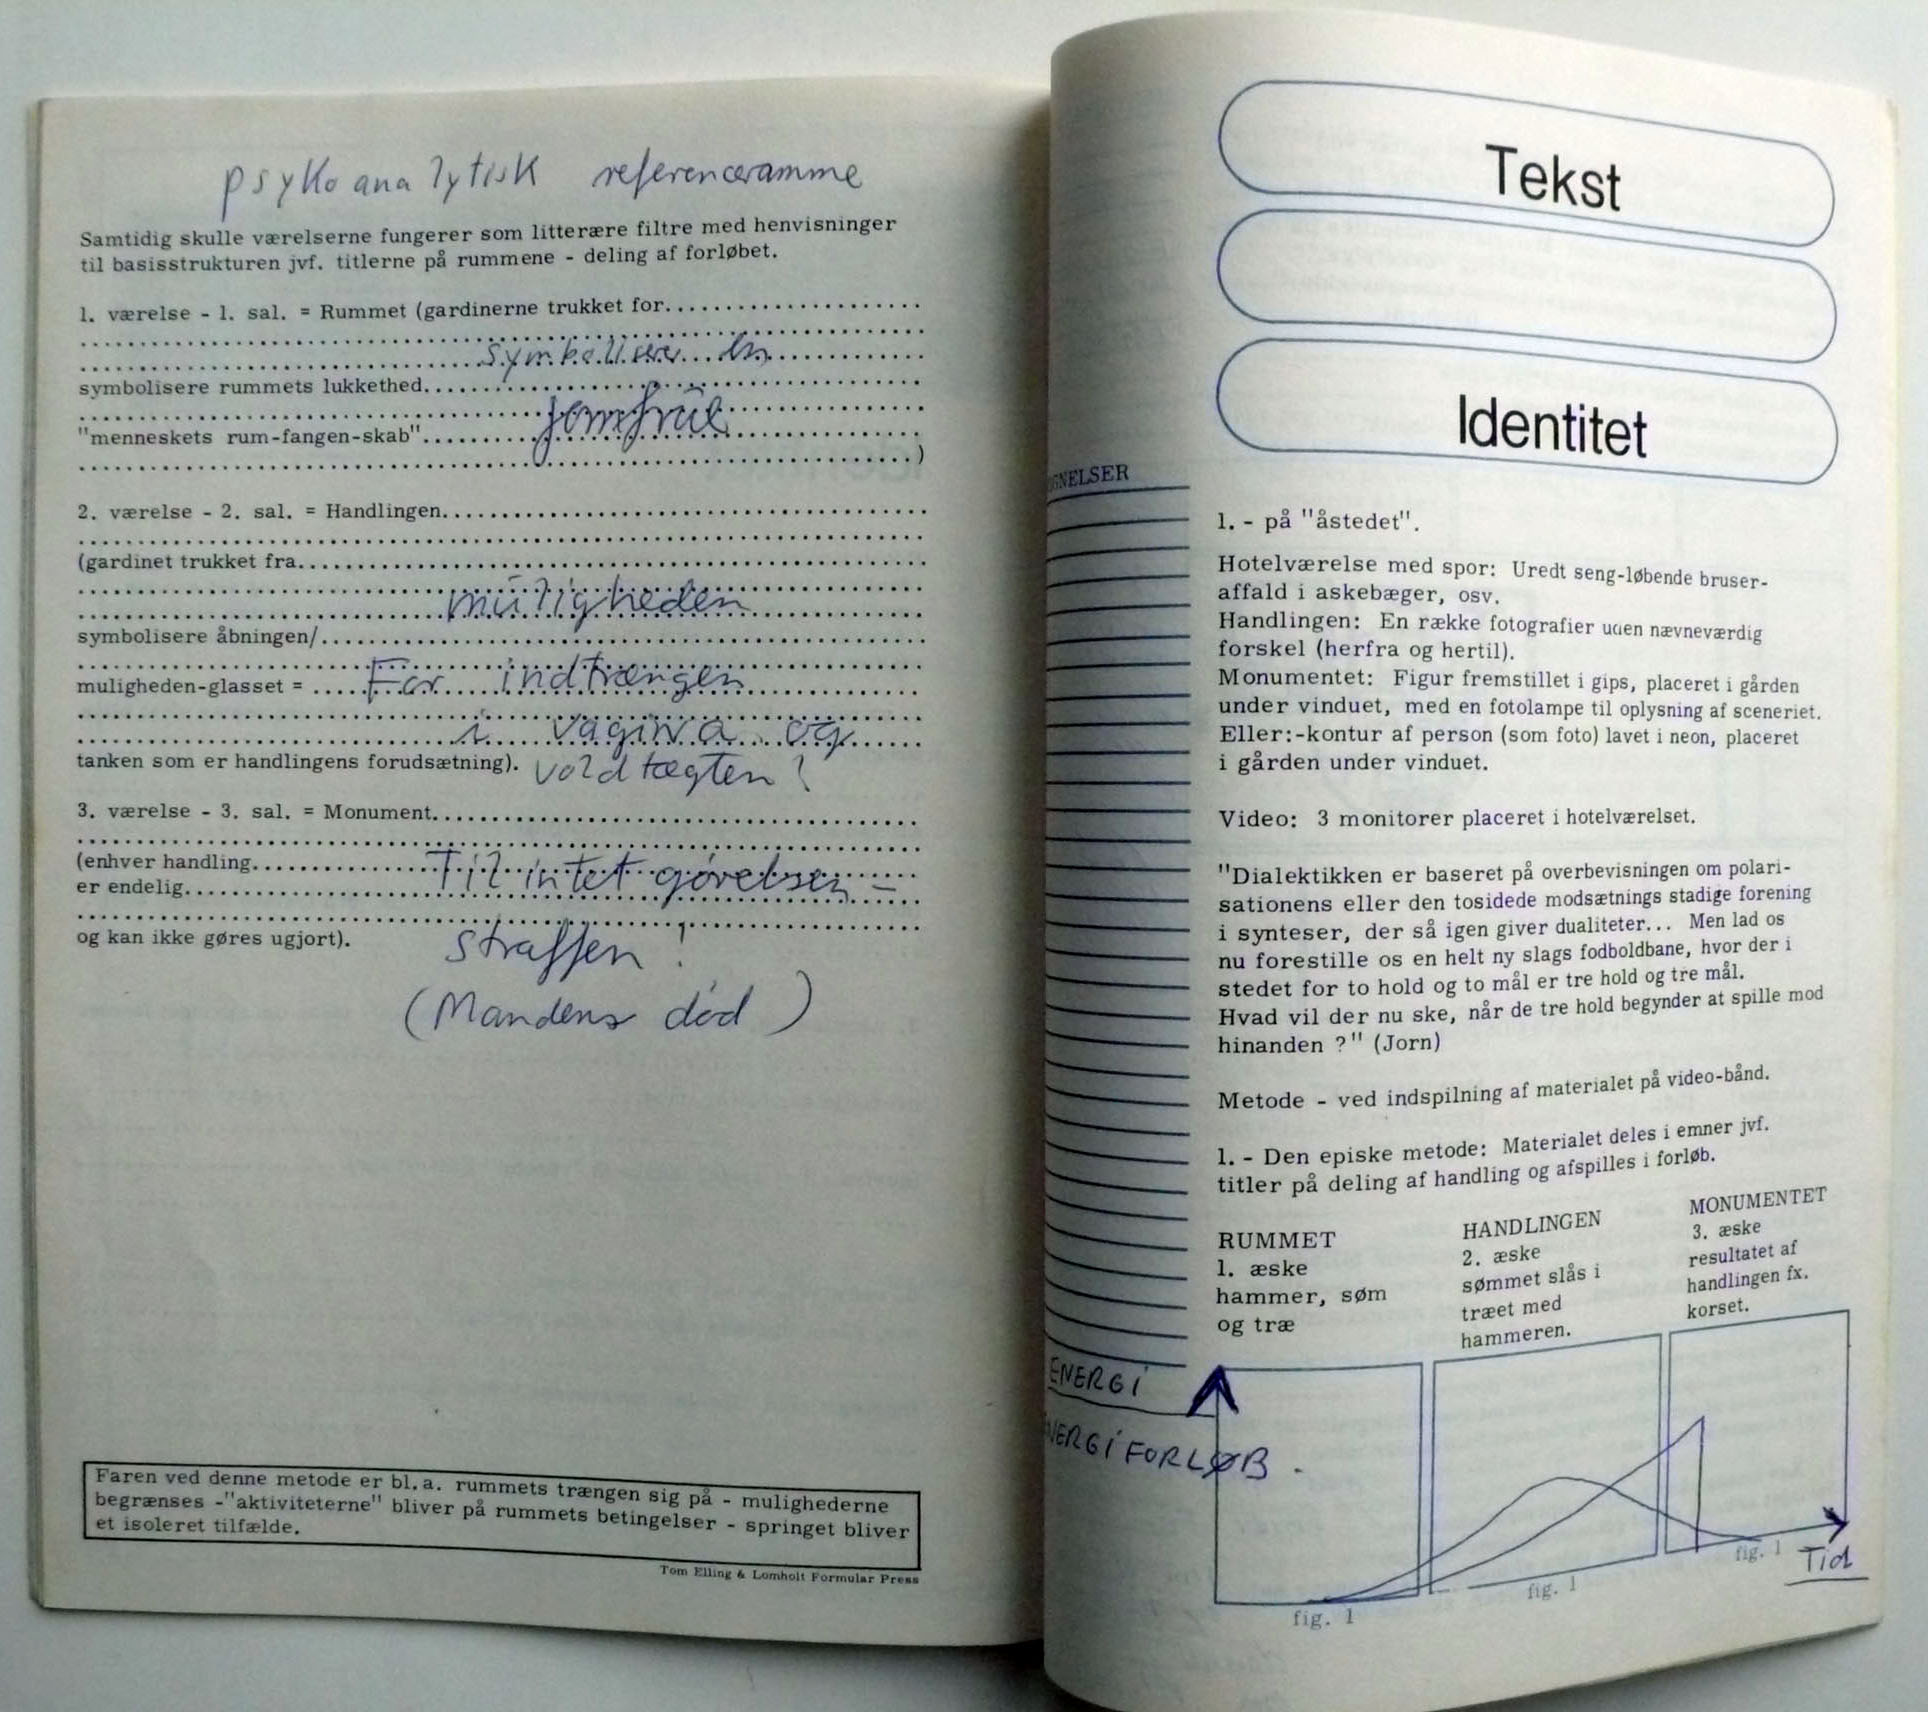 psykoanalytisk referenceramme
Samtidig skulle værelserne fungerer som litterære filtre med henvisninger
til basisstrukturen jvf. titlerne på rummene - deling af forløbet.
1. værelse - 1. sal. = Rummet (gardinerne trukket for
symboliserer en
symbolisere rummets lukkethed
jomfrue
"menneskets rum-fangen-skab"
)
2. værelse - 2. sal. = Handlingen
(gardinet trukket fra
muligheden
symbolisere åbningen/
For indtrængen
muligheden-glasset =
i vagina og
tanken som er handlingens forudsætning).
voldtægten!
3. værelse - 3. sal. = Monument
(enhver handling
Til intet gørelsen -
er endelig
og kan ikke gøres ugjort).
straffen!
(Mandens død)
Faren ved denne metode er bl.a. rummets trængen sig på - mulighederne
begrænses -"aktiviteterne" bliver på rummets betingelser - springet bliver
et isoleret tilfælde.
Tom Elling & Lomholt Formular Press
Tekst
Identitet
GNELSER
1. - på "åstedet".
Hotelværelse med spor: Uredt seng-løbende bruser-
affald i askebæger, osv.
Handlingen: En række fotografier uden nævneværdig
forskel (herfra og hertil).
Monumentet: Figur fremstillet i gips, placeret i gården
under vinduet, med en fotolampe til oplysning af sceneriet.
Eller:-kontur af person (som foto) lavet i neon, placeret
i gården under vinduet.
Video: 3 monitorer placeret i hotelværelset.
"Dialektikken er baseret på overbevisningen om polari-
sationens eller den tosidede modsætnings stadige forening
i synteser, der så igen giver dualiteter... Men lad os
nu forestille os en helt ny slags fodboldbane, hvor der i
stedet for to hold og to mål er tre hold og tre mål.
Hvad vil der nu ske, når de tre hold begynder at spille mod
hinanden ?" (Jorn)
Metode - ved indspilning af materialet på video-bånd.
1. - Den episke metode: Materialet deles i emner jvf.
titler på deling af handling og afspilles i forløb.
RUMMET
1. æske
hammer, søm
og træ
HANDLINGEN
2. æske
sømmet slås i
træet med
hammeren.
MONUMENTET
3. æske
resultatet af
handlingen fx.
korset.
ENERGI
NERGIFORLØB.
fig. 1
fig. 1
fig. 1
Tid